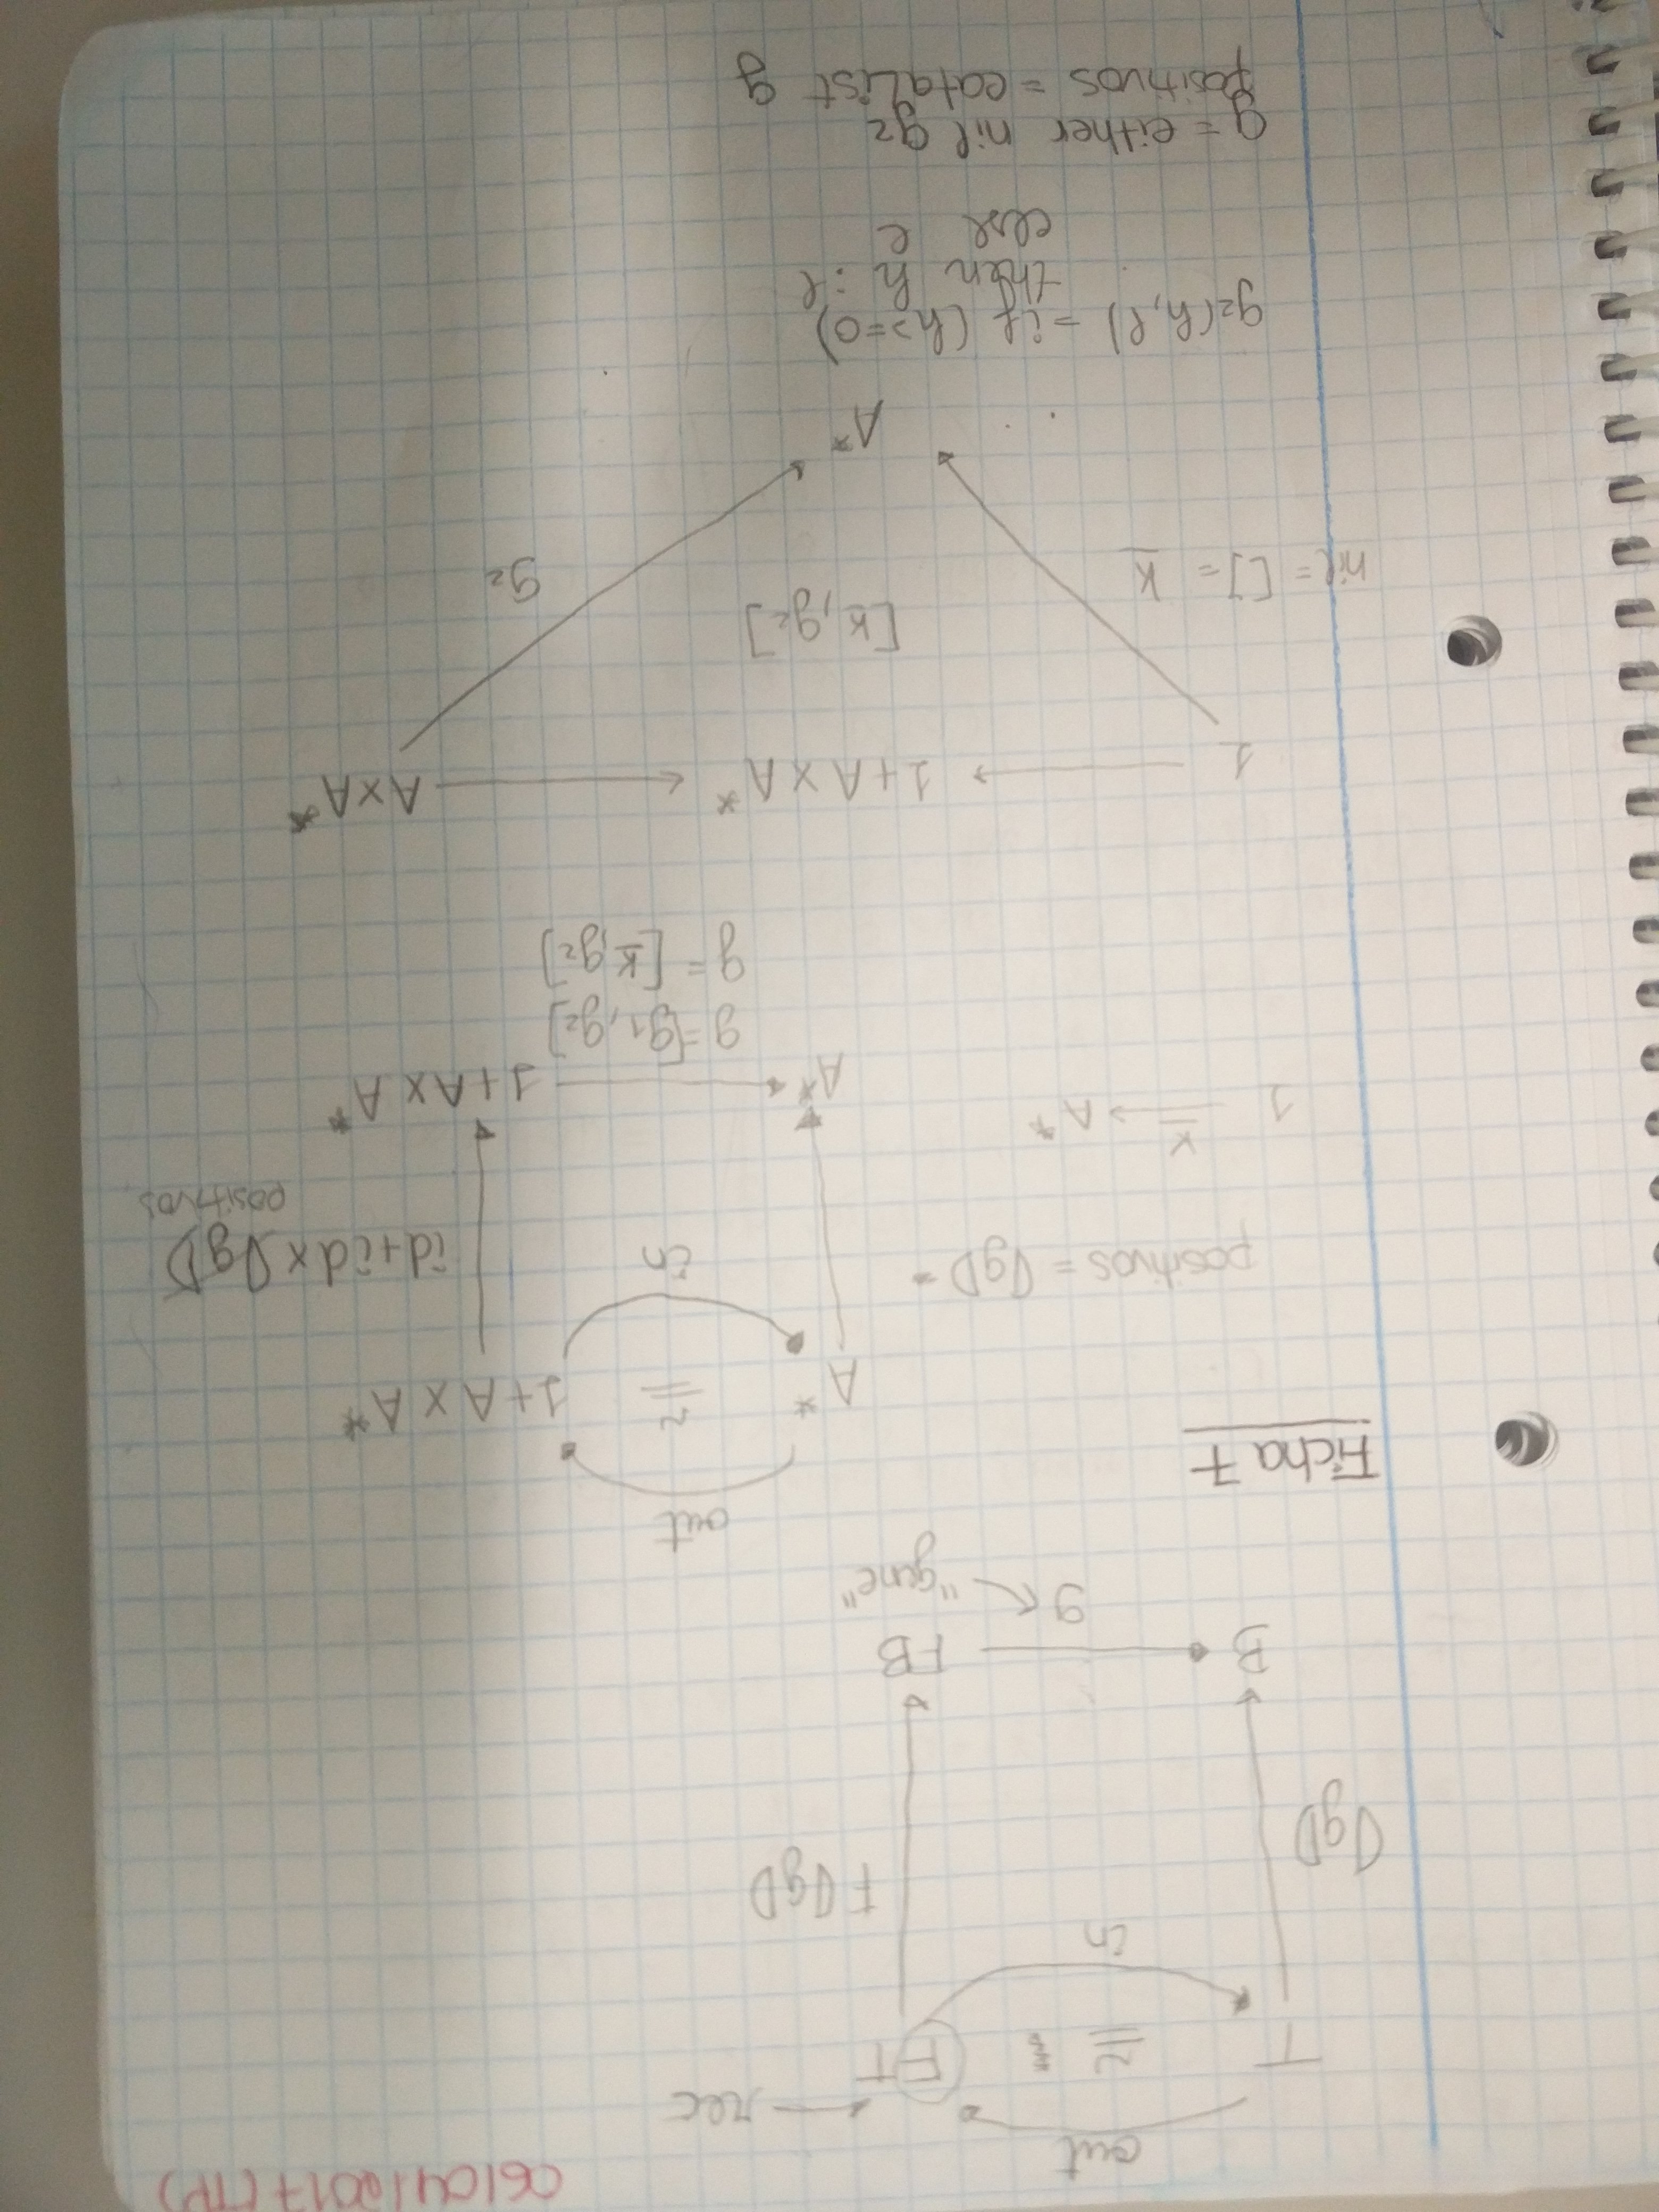 06/04/2017 (TP)
out
T ≅ FT ← rec
in
⦇g⦈ F⦇g⦈
B ← FB
g ↖ "gene"
Ficha 7
out
A* ≅ 1+A×A*
in
positivos = ⦇g⦈ =
id+id×⦇g⦈
positivos
1 —k→ A*
A* ← 1+A×A*
g=[g₁,g₂]
g=[k,g₂]
1 → 1+A×A* ← A×A*
[k,g₂]
nil = [] = k
g₂
A*
g₂(h,l) = if (h>=0)
then h:l
else l
g = either nil g₂
positivos = cataList g